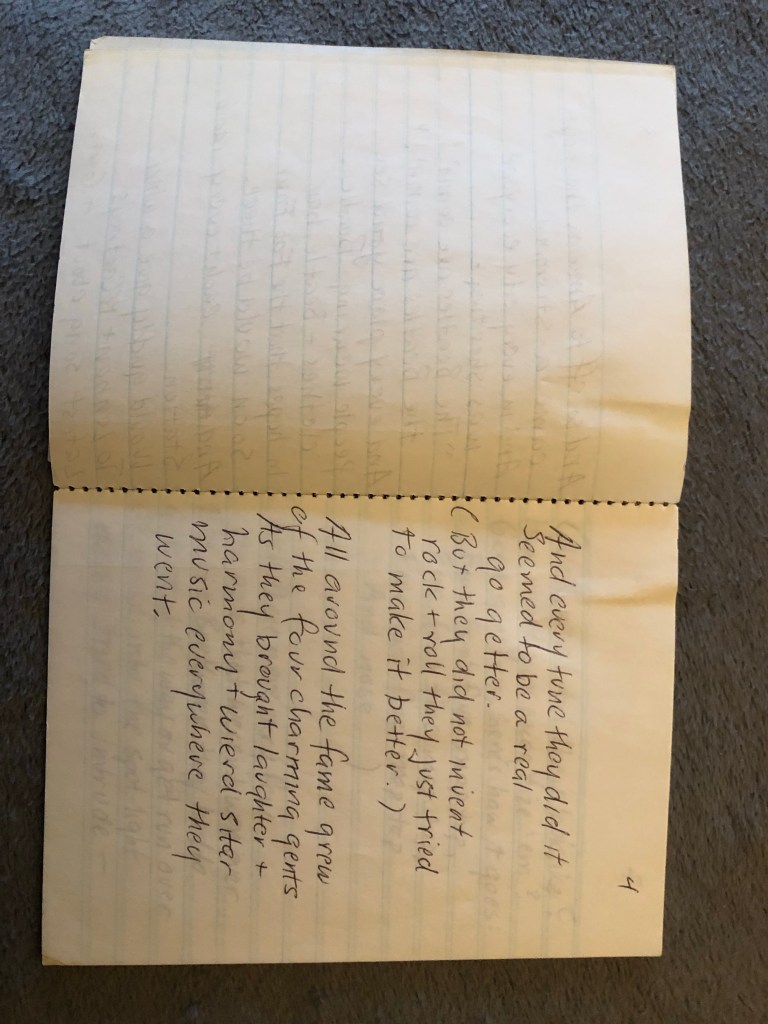 4
And every tune they did it
seemed to be a real
go getter.
(But they did not invent
rock + roll they just tried
to make it better.)
All around the fame grew
of the four charming gents
As they brought laughter +
harmony + wierd sitar
music everywhere they
went.